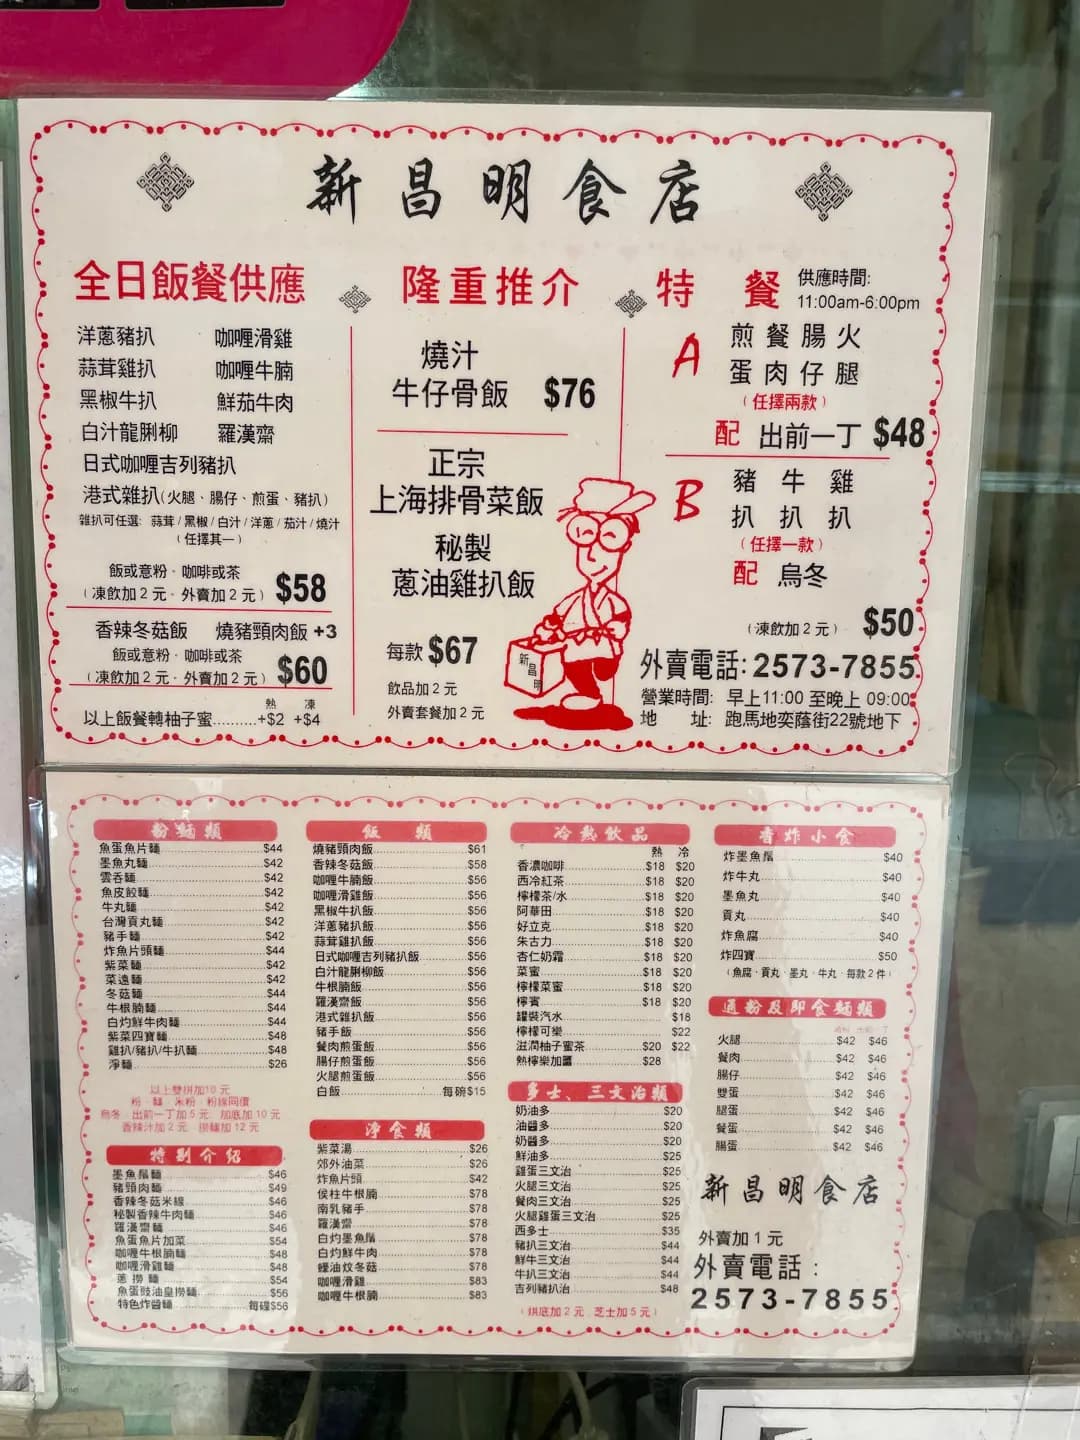 新昌明食店
全日飯餐供應
洋蔥豬扒 咖喱滑雞
蒜茸雞扒 咖喱牛腩
黑椒牛扒 鮮茄牛肉
白汁龍脷柳 羅漢齋
日式咖喱吉列豬扒
港式雜扒(火腿、腸仔、煎蛋、豬扒)
雜扒可任選: 蒜茸/黑椒/白汁/洋蔥/茄汁/燒汁
(任擇其一)
飯或意粉.咖啡或茶
(凍飲加2元.外賣加2元) $58
香辣冬菇飯 燒豬頸肉飯+3
飯或意粉.咖啡或茶
(凍飲加2元.外賣加2元) $60
熱 凍
以上飯餐轉柚子蜜..........+$2 +$4
隆重推介
燒汁
牛仔骨飯 $76
正宗
上海排骨菜飯
秘製
蔥油雞扒飯
每款 $67
飲品加2元
外賣套餐加2元
新昌明
特餐 供應時間:
11:00am-6:00pm
A 煎餐腸火
蛋肉仔腿
(任擇兩款)
配 出前一丁 $48
B 豬牛雞
扒扒扒
(任擇一款)
配 烏冬
(凍飲加2元) $50
外賣電話: 2573-7855
營業時間: 早上11:00 至晚上 09:00
地 址: 跑馬地奕蔭街22號地下
粉麵類
魚蛋魚片麵 $44
墨魚丸麵 $42
雲吞麵 $42
魚皮餃麵 $42
牛丸麵 $42
台灣貢丸麵 $42
豬手麵 $42
炸魚片頭麵 $44
紫菜麵 $42
菜遠麵 $42
冬菇麵 $44
牛根腩麵 $44
白灼鮮牛肉麵 $44
紫菜四寶麵 $48
雞扒/豬扒/牛扒麵 $48
淨麵 $26
以上雙拼加10元
粉.麵.米粉.粉線同價
烏冬.出前一丁加5元.加底加10元
香辣汁加2元 撈麵加12元
特別介紹
墨魚鬚麵 $46
豬頸肉麵 $49
香辣冬菇米線 $46
秘製香辣牛肉麵 $46
羅漢齋麵 $46
魚蛋魚片加菜 $54
咖喱牛根腩麵 $48
咖喱滑雞麵 $48
蔥撈麵 $54
魚蛋豉油皇撈麵 $56
特色炸醬麵 每碟$56
飯類
燒豬頸肉飯 $61
香辣冬菇飯 $58
咖喱牛腩飯 $56
咖喱滑雞飯 $56
黑椒牛扒飯 $56
洋蔥豬扒飯 $56
蒜茸雞扒飯 $56
日式咖喱吉列豬扒飯 $56
白汁龍脷柳飯 $56
牛根腩飯 $56
羅漢齋飯 $56
港式雜扒飯 $56
豬手飯 $56
餐肉煎蛋飯 $56
腸仔煎蛋飯 $56
火腿煎蛋飯 $56
白飯 每碗$15
淨食類
紫菜湯 $26
郊外油菜 $26
炸魚片頭 $42
侯柱牛根腩 $78
南乳豬手 $78
羅漢齋 $78
白灼墨魚鬚 $78
白灼鮮牛肉 $78
蠔油炆冬菇 $78
咖喱滑雞 $83
咖喱牛根腩 $83
冷熱飲品
熱 冷
香濃咖啡 $18 $20
西冷紅茶 $18 $20
檸檬茶/水 $18 $20
阿華田 $18 $20
好立克 $18 $20
朱古力 $18 $20
杏仁奶霜 $18 $20
菜蜜 $18 $20
檸檬菜蜜 $18 $20
檸賓 $18 $20
罐裝汽水 $18
檸檬可樂 $22
滋潤柚子蜜茶 $20 $22
熱檸樂加薑 $28
多士、三文治類
奶油多 $20
油醬多 $20
奶醬多 $20
鮮油多 $25
雞蛋三文治 $25
火腿三文治 $25
餐肉三文治 $25
火腿雞蛋三文治 $25
西多士 $35
豬扒三文治 $44
鮮牛三文治 $44
牛扒三文治 $44
吉列豬扒治 $48
(烘底加2元 芝士加5元)
香炸小食
炸墨魚鬚 $40
炸牛丸 $40
墨魚丸 $40
貢丸 $40
炸魚腐 $40
炸四寶 $50
(魚腐.貢丸.墨丸.牛丸.每款2件)
通粉及即食麵類
火腿 $42 $46
餐肉 $42 $46
腸仔 $42 $46
雙蛋 $42 $46
腿蛋 $42 $46
餐蛋 $42 $46
腸蛋 $42 $46
新昌明食店
外賣加1元
外賣電話:
2573-7855